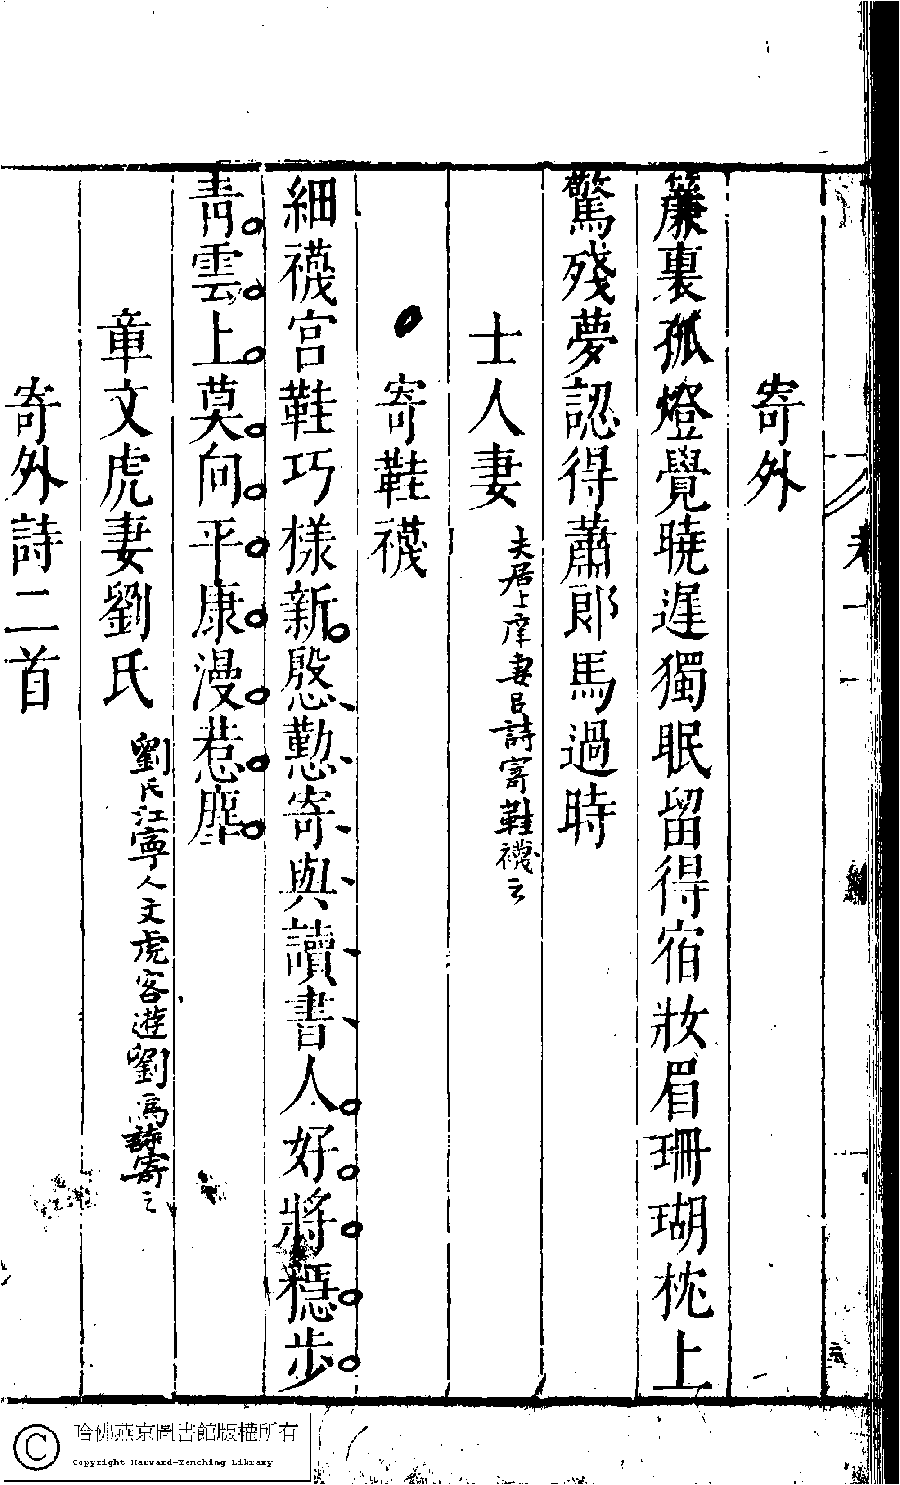 寄外
簾裏孤燈覺曉遲獨眠留得宿妝眉珊瑚枕上
驚殘夢認得蕭郎馬過時
士人妻
夫居上庠妻㠯詩寄鞋襪云
寄鞋襪
細襪宮鞋巧樣新慇懃寄與讀書人好將穩步
青雲上莫向平康漫惹塵
章文虎妻劉氏
劉氏江寧人文虎客遊劉為詩寄之
寄外詩二首
哈佛燕京圖書館版權所有
Copyright Harvard-Yenching Library